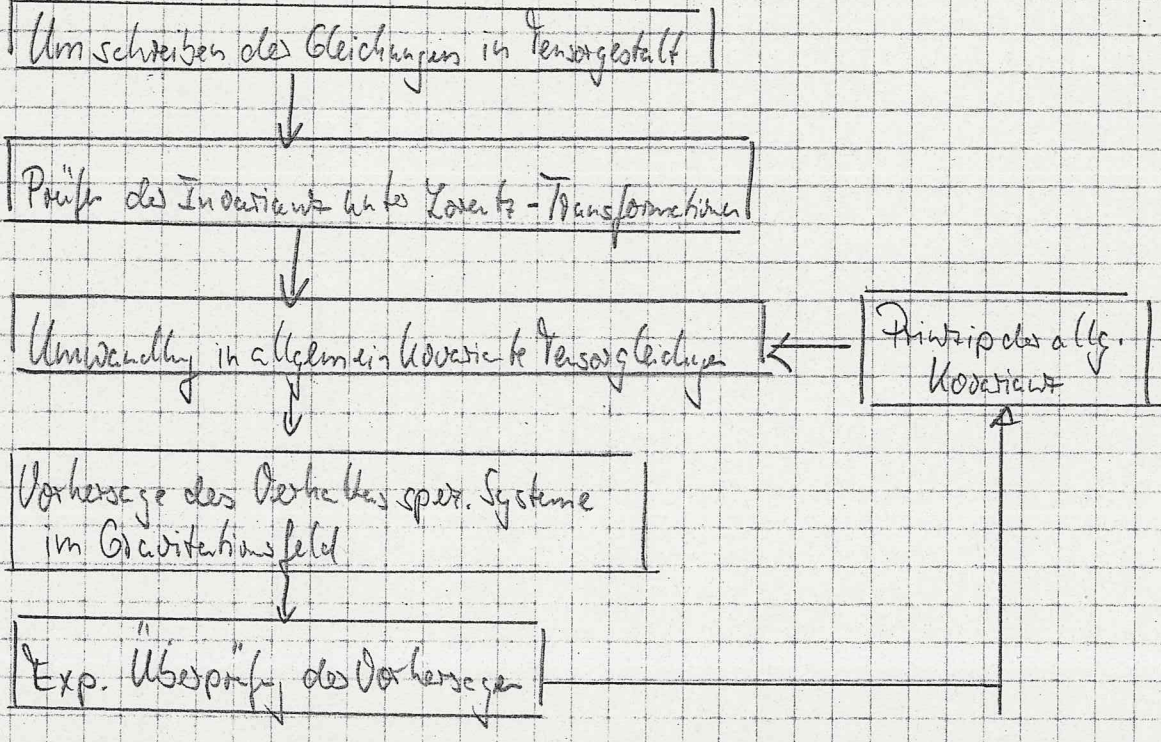 Umschreiben der Gleichungen in Tensorgestalt
Prüfen der Invarianz unter Lorentz-Transformationen
Umwandlung in allgemein kovariante Tensorgleichungen
Prinzip der allg.
Kovarianz
Vorhersage des Verhaltens spez. Systeme
im Gravitationsfeld
Exp. Überprüfung der Vorhersagen